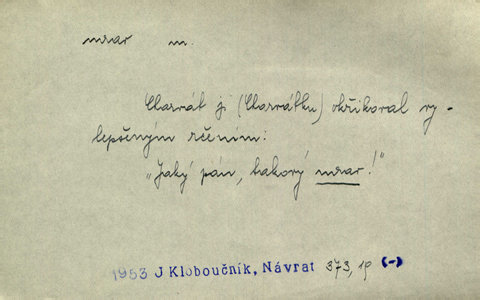 mrav m.
Charvát ji (Charvátku) okřikoval vy-
lepšeným rčením:
„Jaký pán, takový mrav!"
1953 J Kloboučník, Návrat 373, 19 (-)